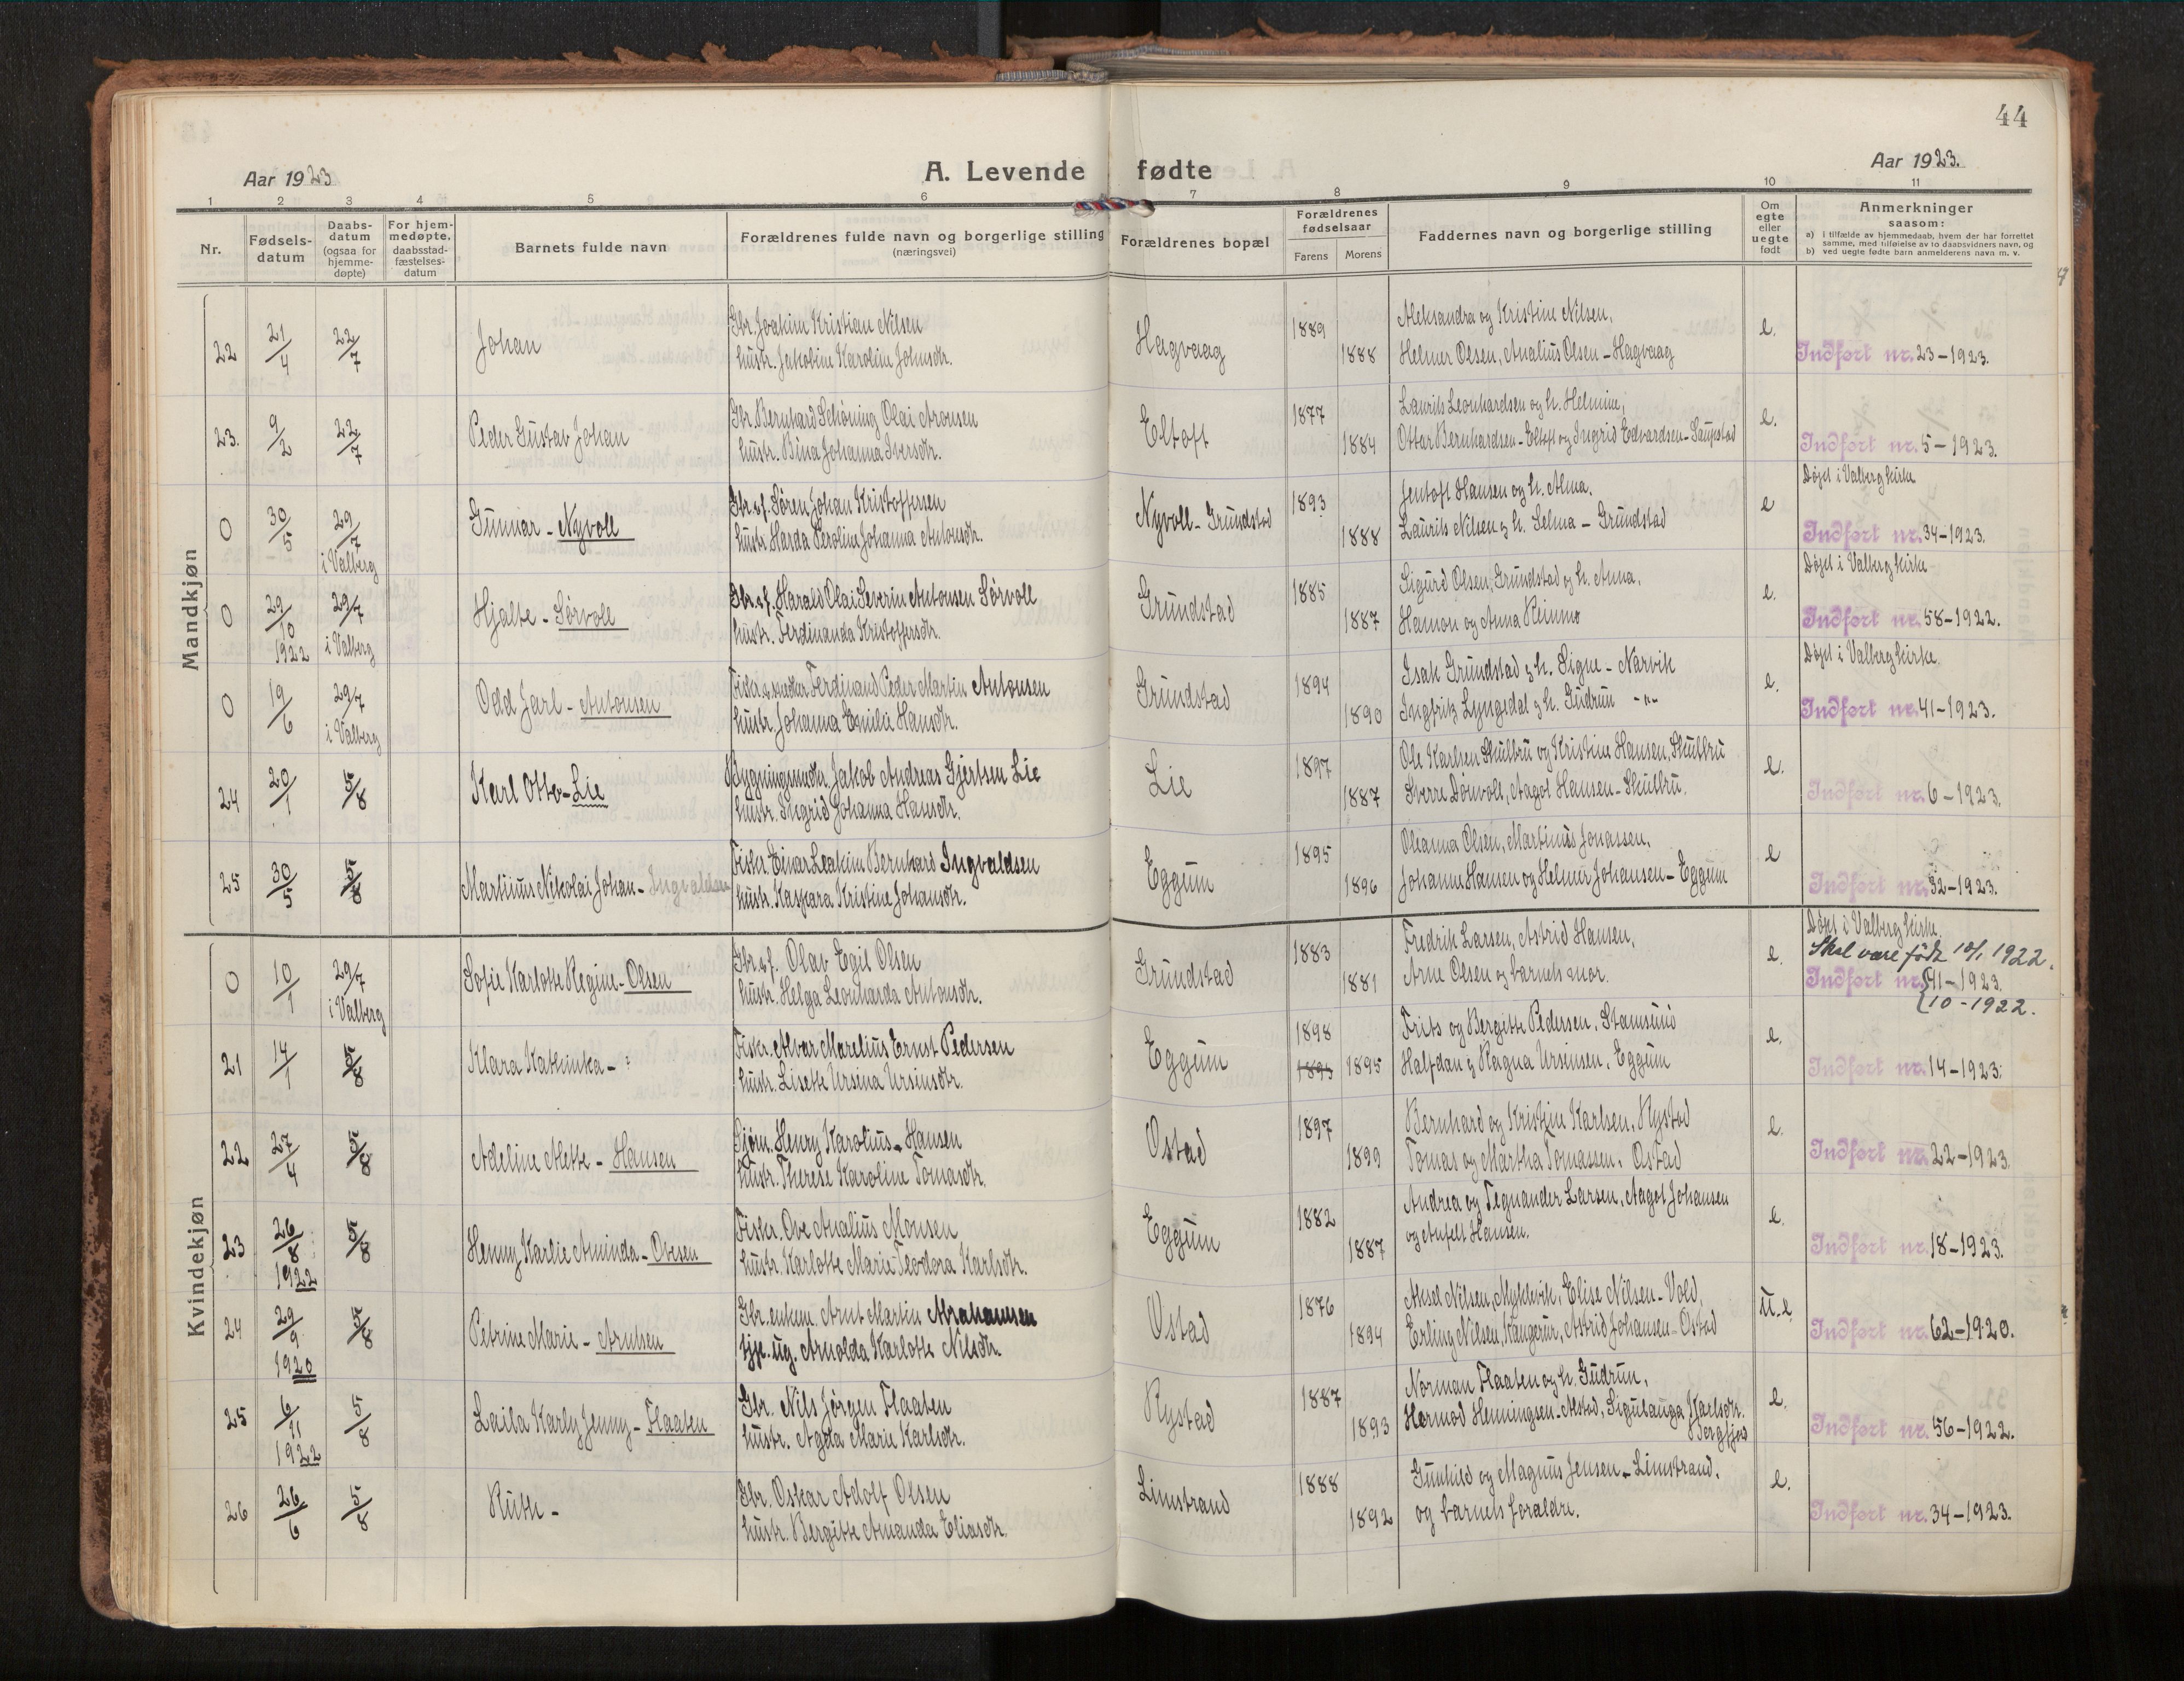 44
Aar 1923
A. Levende fødte
Aar 1923.
1 2 3 4 5 6 7 8 9 10 11
Nr.
Fødsels-
datum
Daabs-
datum
(ogsaa for
hjemme-
døpte)
For hjem-
medøpte,
daabsstad-
fæstelses-
datum
Barnets fulde navn
Forældrenes fulde navn og borgerlige stilling
(næringsvei)
Forældrenes bopæl
Forældrenes
fødselsaar
Farens Morens
Faddernes navn og borgerlige stilling
Om
egte
eller
uegte
født
Anmerkninger
saasom:
a) i tilfælde av hjemmedaab, hvem der har forrettet
samme, med tilføielse av to daabsvidners navn, og
b) ved uegte fødte barn anmelderens navn m. v.
Mandkjøn
22 21/4 22/7 Johan Gbr. Joakim Kristian Nilsen Hagvaag 1889 Aleksandra og Kristine Nilsen, e.
hustr. Jakobine Karolin Johnsdtr. 1888 Helmer Olsen, Analius Olsen - Hagvaag Indført nr. 23-1923.
23. 9/2 22/7 Peder Gustav Johan Gbr. Bernhard Schöning Olai Aronsen Eltoft 1877 Laurits Leonhardsen og h. Helmine, e.
hustr. Bina Johanna Iversdtr. 1884 Ottar Bernhardsen - Eltoft og Ingrid Edvardsen - Saupstad Indført nr. 5-1923.
0 30/5 29/7 i Valberg Gunnar - Nyvoll Gbr. & f. Søren Johan Kristoffersen Nyvoll - Grundstad 1893 Jentoft Hansen og h. Alma, e Døpt i Valberg kirke
hustr. Harda Peroline Johanna Antonsdtr. 1888 Laurits Nilsen & h. Selma - Grundstad Indført nr. 34-1923.
0 29/10 1922 29/7 i Valberg Hjalte - Sørvoll Gbr. & f. Harald Olai Severin Antonsen Sørvoll Grundstad 1885 Sigurd Olsen, Grundstad og h. Anna, e. Døpt i Valberg kirke
hustr. Ferdinanda Kristoffersdtr. 1887 Hamon og Anna Reinmo Indført nr. 58-1922.
0 19/6 29/7 i Valberg Odd Jarl - Antonsen Ferdinand Peder Martin Antonsen Grundstad 1894 Isak Grundstad & h. Signe - Narvik e. Døpt i Valberg kirke.
hustr. Johanna Emilie Hansdtr. 1890 Ingfrits Lyngedal & h. Gudrun - " - Indført nr. 41-1923.
24 20/1 5/8 Karl Otto - Lie Bygningssnedkr. Jakob Andreas Gjertsen Lie Lie 1897 Ole Karlsen Skulbru og Kristine Hansen, Skulbru e.
hustr. Ingrid Johanna Hansdtr. 1887 Sverre Dønvoll, Aagot Hansen - Skulbru. Indført nr. 6-1923.
25 30/5 5/8 Martinus Nikolai Johan - Ingvaldsen Fiskr. Einar Leakim Bernhard Ingvaldsen Eggum 1895 Oleanna Olsen, Martinus Jonassen, e
hustr. Kaspara Kristine Johansdtr. 1896 Johanne Hansen og Helmer Johansen - Eggum Indført nr. 32-1923.
Kvindekjøn
0 10/1 29/7 i Valberg Sofie Karlotte Regine - Olsen Gbr. & f. Olav Egil Olsen Grundstad 1883 Fredrik Larsen, Astrid Hansen, e. Døpt i Valberg kirke.
Skal være født 10/1 1922.
hustr. Helga Leonharda Antonsdtr. 1881 Arne Olsen og barnets mor. Indført nr. 41-1923.
10-1922.
21 14/1 5/8 Klara Kathinka - Fiskr. Alvar Marelius Ernst Pedersen Eggum 1898 Frits og Bergitte Pedersen, Stamsund e.
hustr. Lisette Ursina Ursinsdtr. 1895 1895 Halfdan & Ragna Ursinsen, Eggum Indført nr. 14-1923.
22 27/4 5/8 Adeline Alette - Hansen Gjørn. Henry Karolius Hansen Ostad 1897 Bernhard og Kristine Karlsen, Rystad e.
hustr. Therese Karoline Tomasdtr. 1899 Tomas og Martha Tomassen, Ostad Indført nr. 22-1923.
23 26/8 1922 5/8 Henny Karlie Aminda - Ovesen Fiskr. Ove Analius Monsen Eggum 1882 Andrea og Tegnander Larsen, Aagot Johansen e.
hustr. Karlotte Marie Teodora Karlsdtr. 1887 og Anfelt Hansen. Indført nr. 18-1923.
24 29/9 1920 5/8 Petrine Marie - Arntsen Gbr. enkem. Arnt Martin Abrahamsen Ostad 1876 Aksel Nilsen, Myklevik, Elise Nilsen - Vold, u.e
tjp. ug. Arnolda Karlotte Nilsdtr. 1894 Erling Nilsen, Kangerur, Astrid Johansen - Ostad Indført nr. 62-1920.
25 6/11 1922 5/8 Laila Karly Jenny - Flaaten Gbr. Nils Jørgen Flaaten Rystad 1887 Norman Flaaten og h. Gudrun, e.
hustr. Agda Marie Karlsdtr. 1893 Hermod Henningsen - Alstad, Sigulauga Karlsdtr. Bergfjord Indført nr. 56-1922.
26 26/6 5/8 Ruth - Gbr. Oskar Adolf Olsen Limstrand 1888 Gunhild og Magnus Jensen - Limstrand, e.
hustr. Bergitte Amanda Eliasdtr. 1892 og barnets foraldre. Indført nr. 34-1923.